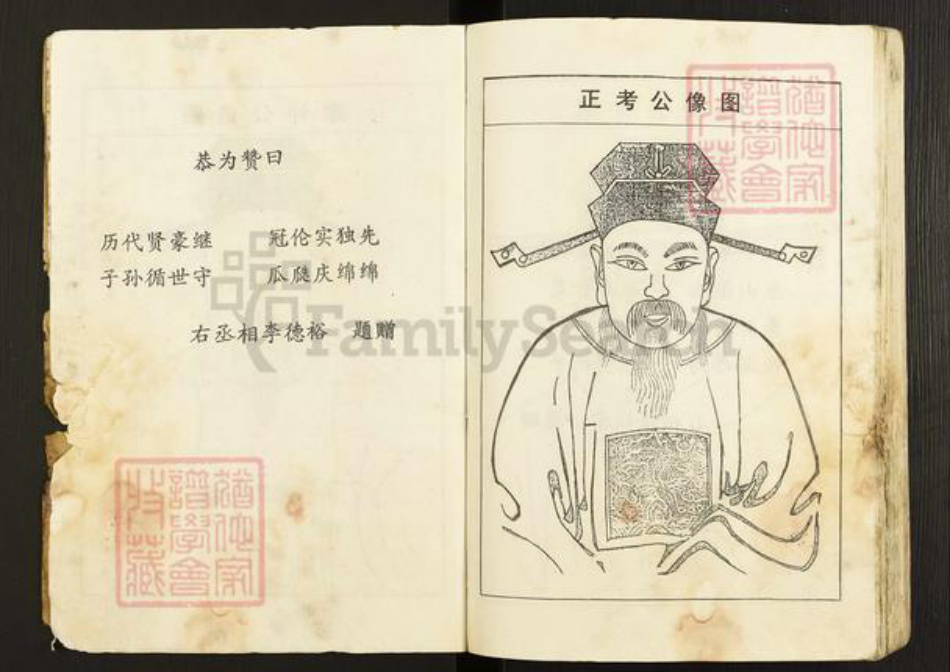 恭为赞曰
历代贤豪继 冠伦实独先
子孙循世守 瓜瓞庆绵绵
右丞相李德裕 题赠
正考公像图
FamilySearch
猶他家
譜學會
收藏
猶他家
譜學會
收藏